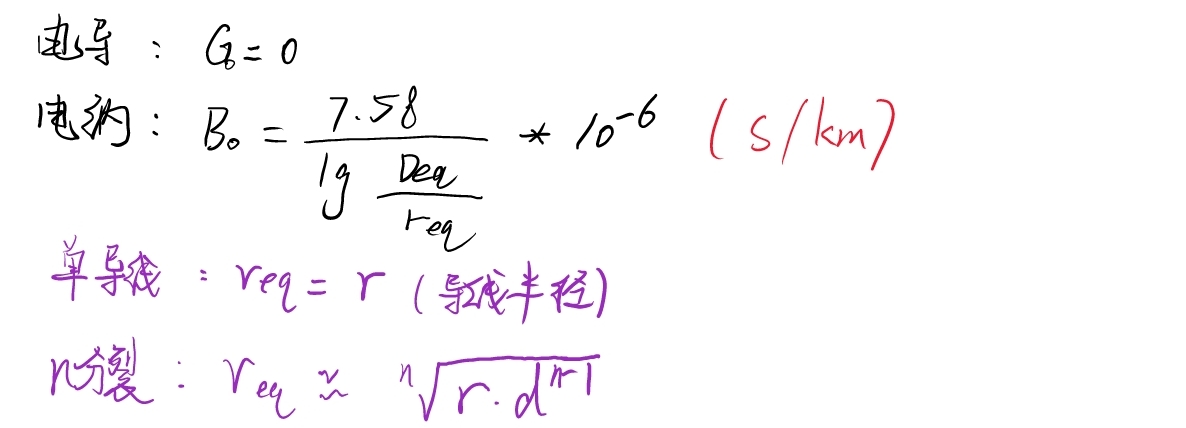 电导: G₀=0
电纳: B₀ = \frac{7.58}{lg \frac{Deq}{req}} * 10⁻⁶ (S/km)
单导线: req = r (导线半径)
n分裂: req ≈ \sqrt[n]{r·d^{n-1}}